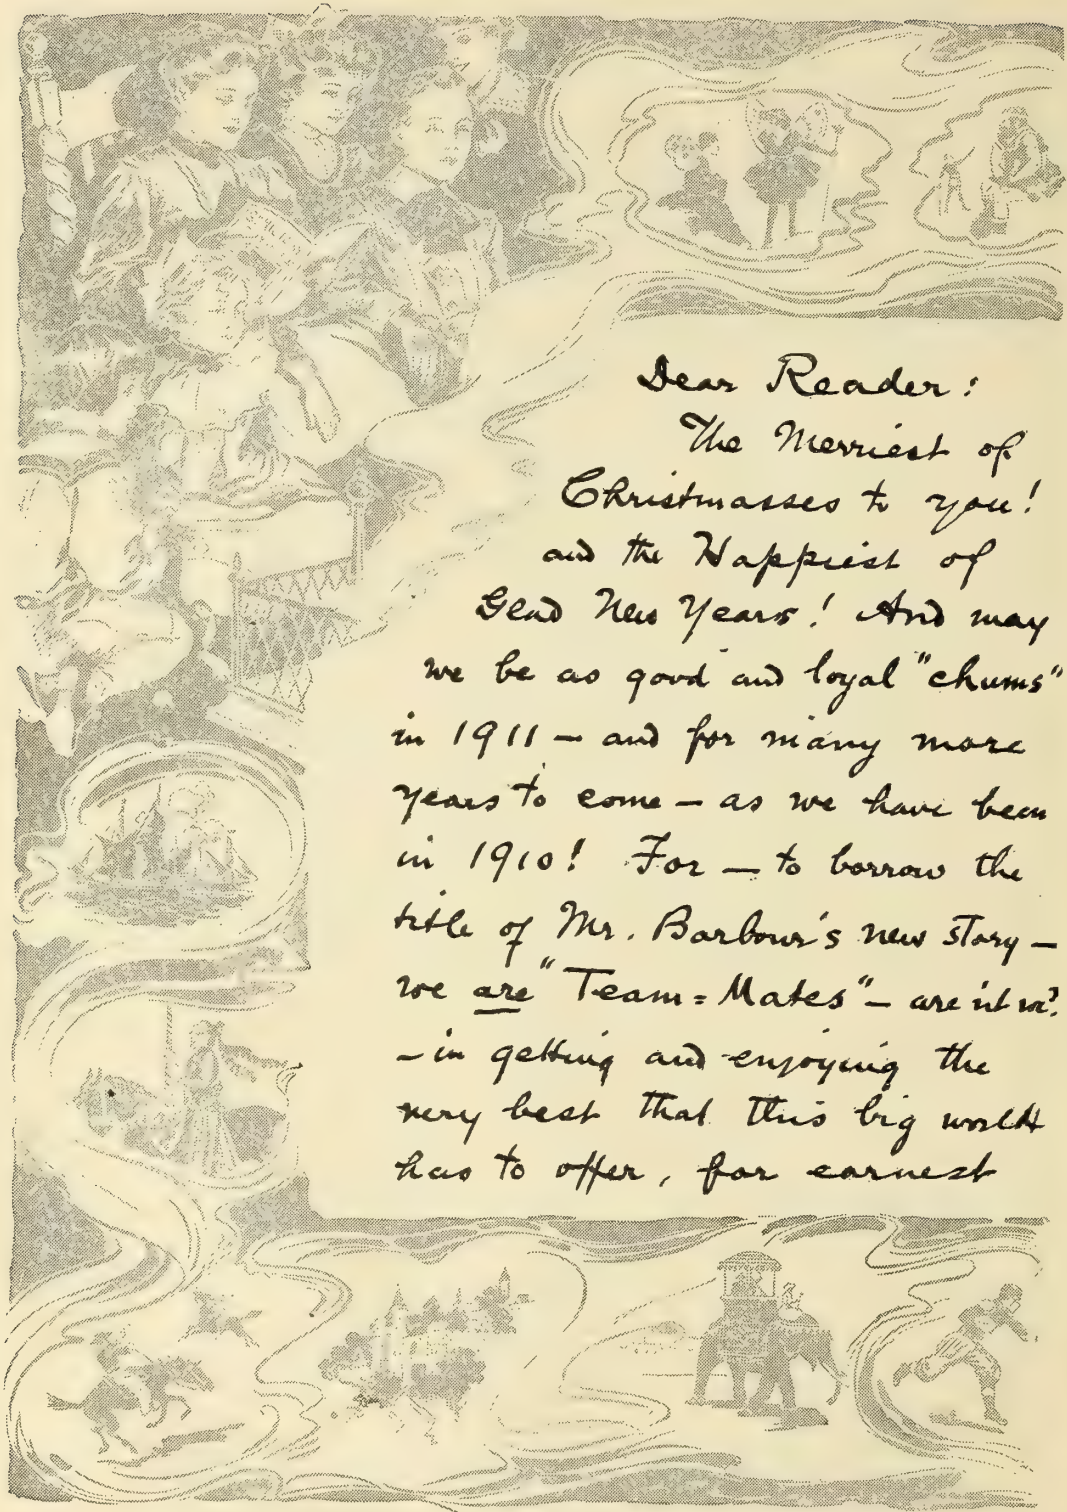 Dear Reader:
The Merriest of
Christmasses to you!
and the Happiest of
Glad New Years! And may
we be as good and loyal "chums"
in 1911 — and for many more
years to come — as we have been
in 1910! For — to borrow the
title of Mr. Barbour's new story —
we are "Team-Mates" — are n't we?
— in getting and enjoying the
very best that this big world
has to offer, for earnest